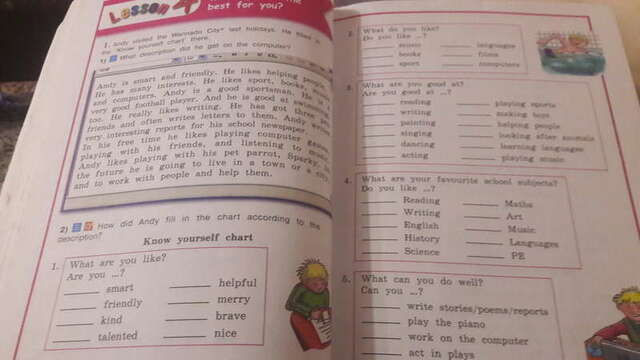 Lesson 4
best for you?
1. Andy visited the "Wannado City" last holidays. He filled in
the "Know yourself chart" there.
1) What description did he get on the computer?
Andy is smart and friendly. He likes helping people.
He has many interests. He likes sport, books,
and computers. Andy is a good sportsman. He is a
very good football player. And he is good at swimming
too. He really likes writing. He has got three
friends and often writes letters to them. Andy writes
very interesting reports for his school newspaper.
In his free time he likes playing computer games,
playing with his friends, and listening to music.
Andy likes playing with his pet parrot, Sparky. In
the future he is going to live in a town or a city
and to work with people and help them.
2) How did Andy fill in the chart according to the
description?
Know yourself chart
1. What are you like?
Are you ...?
smart helpful
friendly merry
kind brave
talented nice
2. What do you like?
Do you like ...?
music languages
books films
sport computers
3. What are you good at?
Are you good at ...?
reading playing sports
writing making toys
painting helping people
singing looking after animals
dancing learning languages
acting playing music
4. What are your favourite school subjects?
Do you like ...?
Reading Maths
Writing Art
English Music
History Languages
Science PE
5. What can you do well?
Can you ...?
write stories/poems/reports
play the piano
work on the computer
act in plays